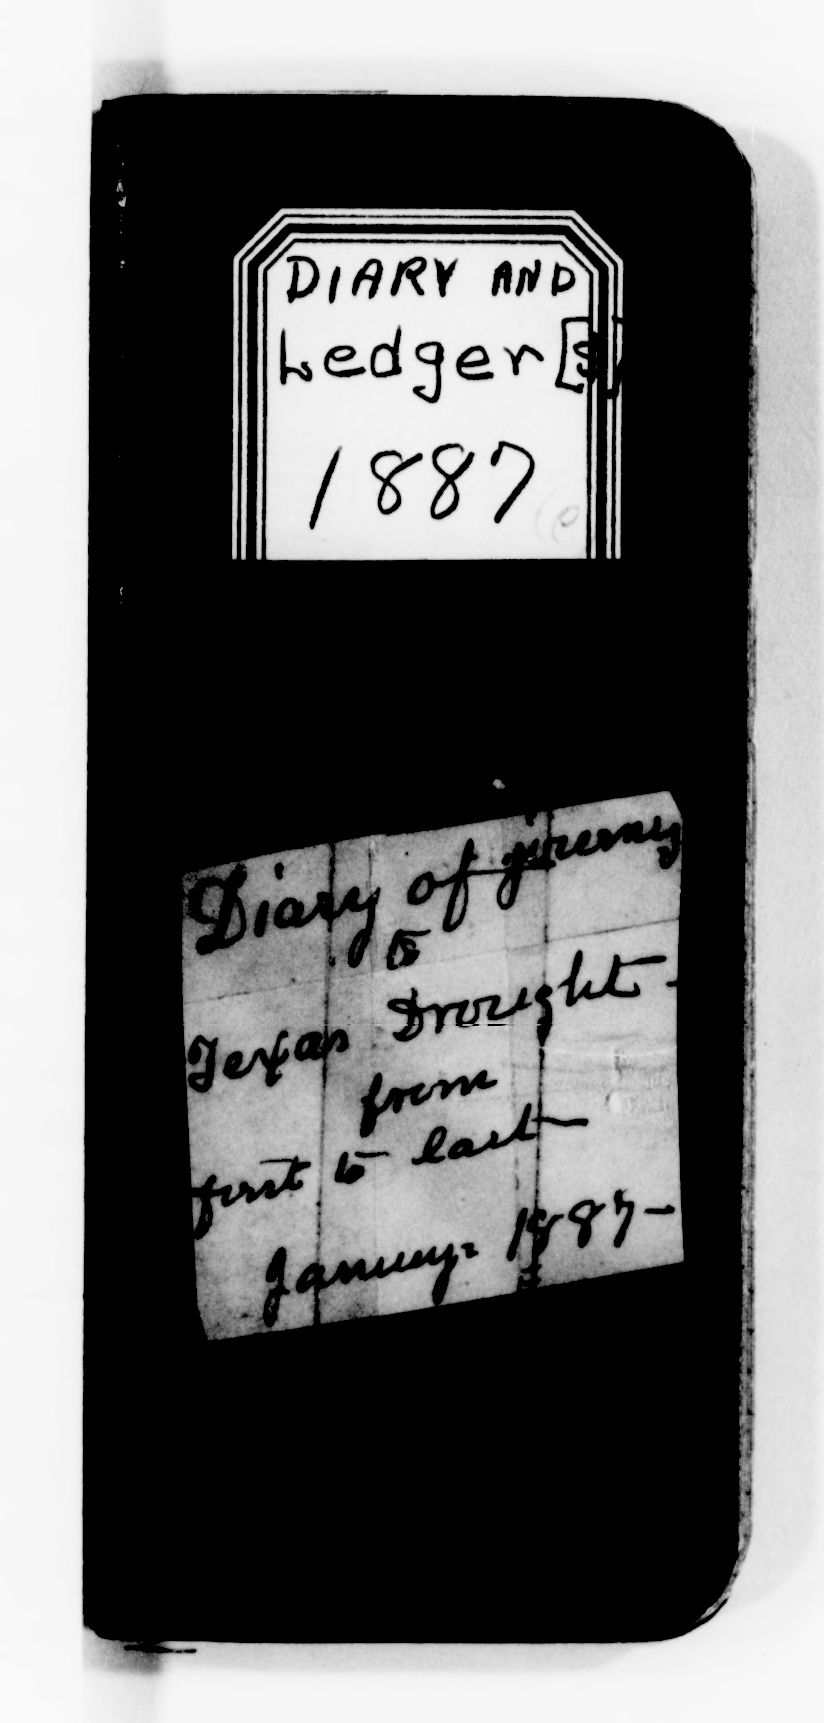 DIARY AND
Ledger [S]
1887
Diary of journey
to
Texas Drought-
from
first to last
January= 1887-